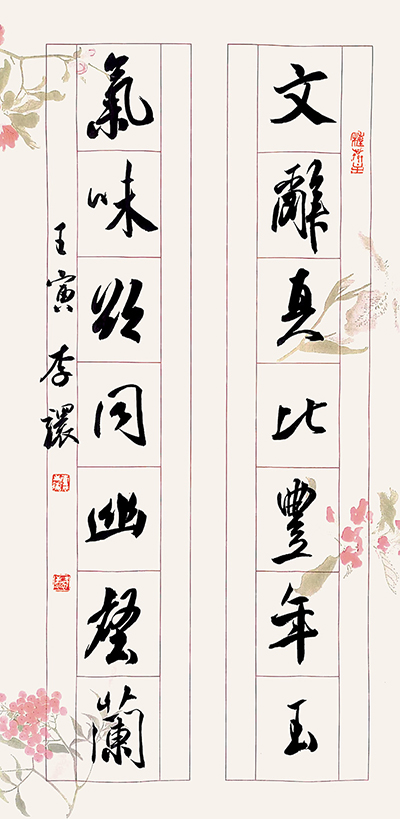 文辭真比豐年玉
氣味欲同幽壑蘭
壬寅 李環